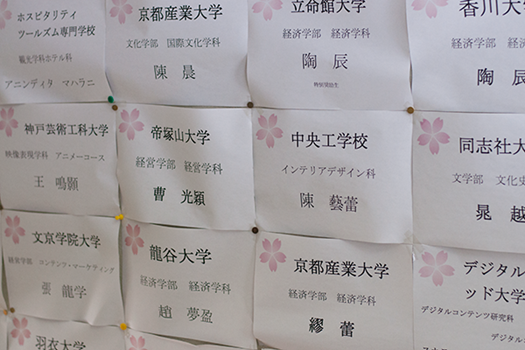 ホスピタリティ
ツールズム専門学校
観光学科ホテル科
アニンディタ マハラニ
京都産業大学
文化学部 国際文化学科
陳 晨
立命館大学
経済学部 経済学科
陶 辰
特別奨励生
香川大学
経済学部 経済学科
陶 辰
神戸芸術工科大学
映像表現学科 アニメーコース
王 鳴顥
帝塚山大学
経営学部 経営学科
曹 光穎
中央工学校
インテリアデザイン科
陳 藝蕾
同志社大
文学部 文化史
晁 越
文京学院大学
経営学部 コンテンツ・マーケティング
張 龍学
龍谷大学
経済学部 経済学科
趙 夢盈
京都産業大学
経済学部 経済学科
繆 蕾
デジタル
ッド大学
デジタルコンテンツ研究科
羽衣大学